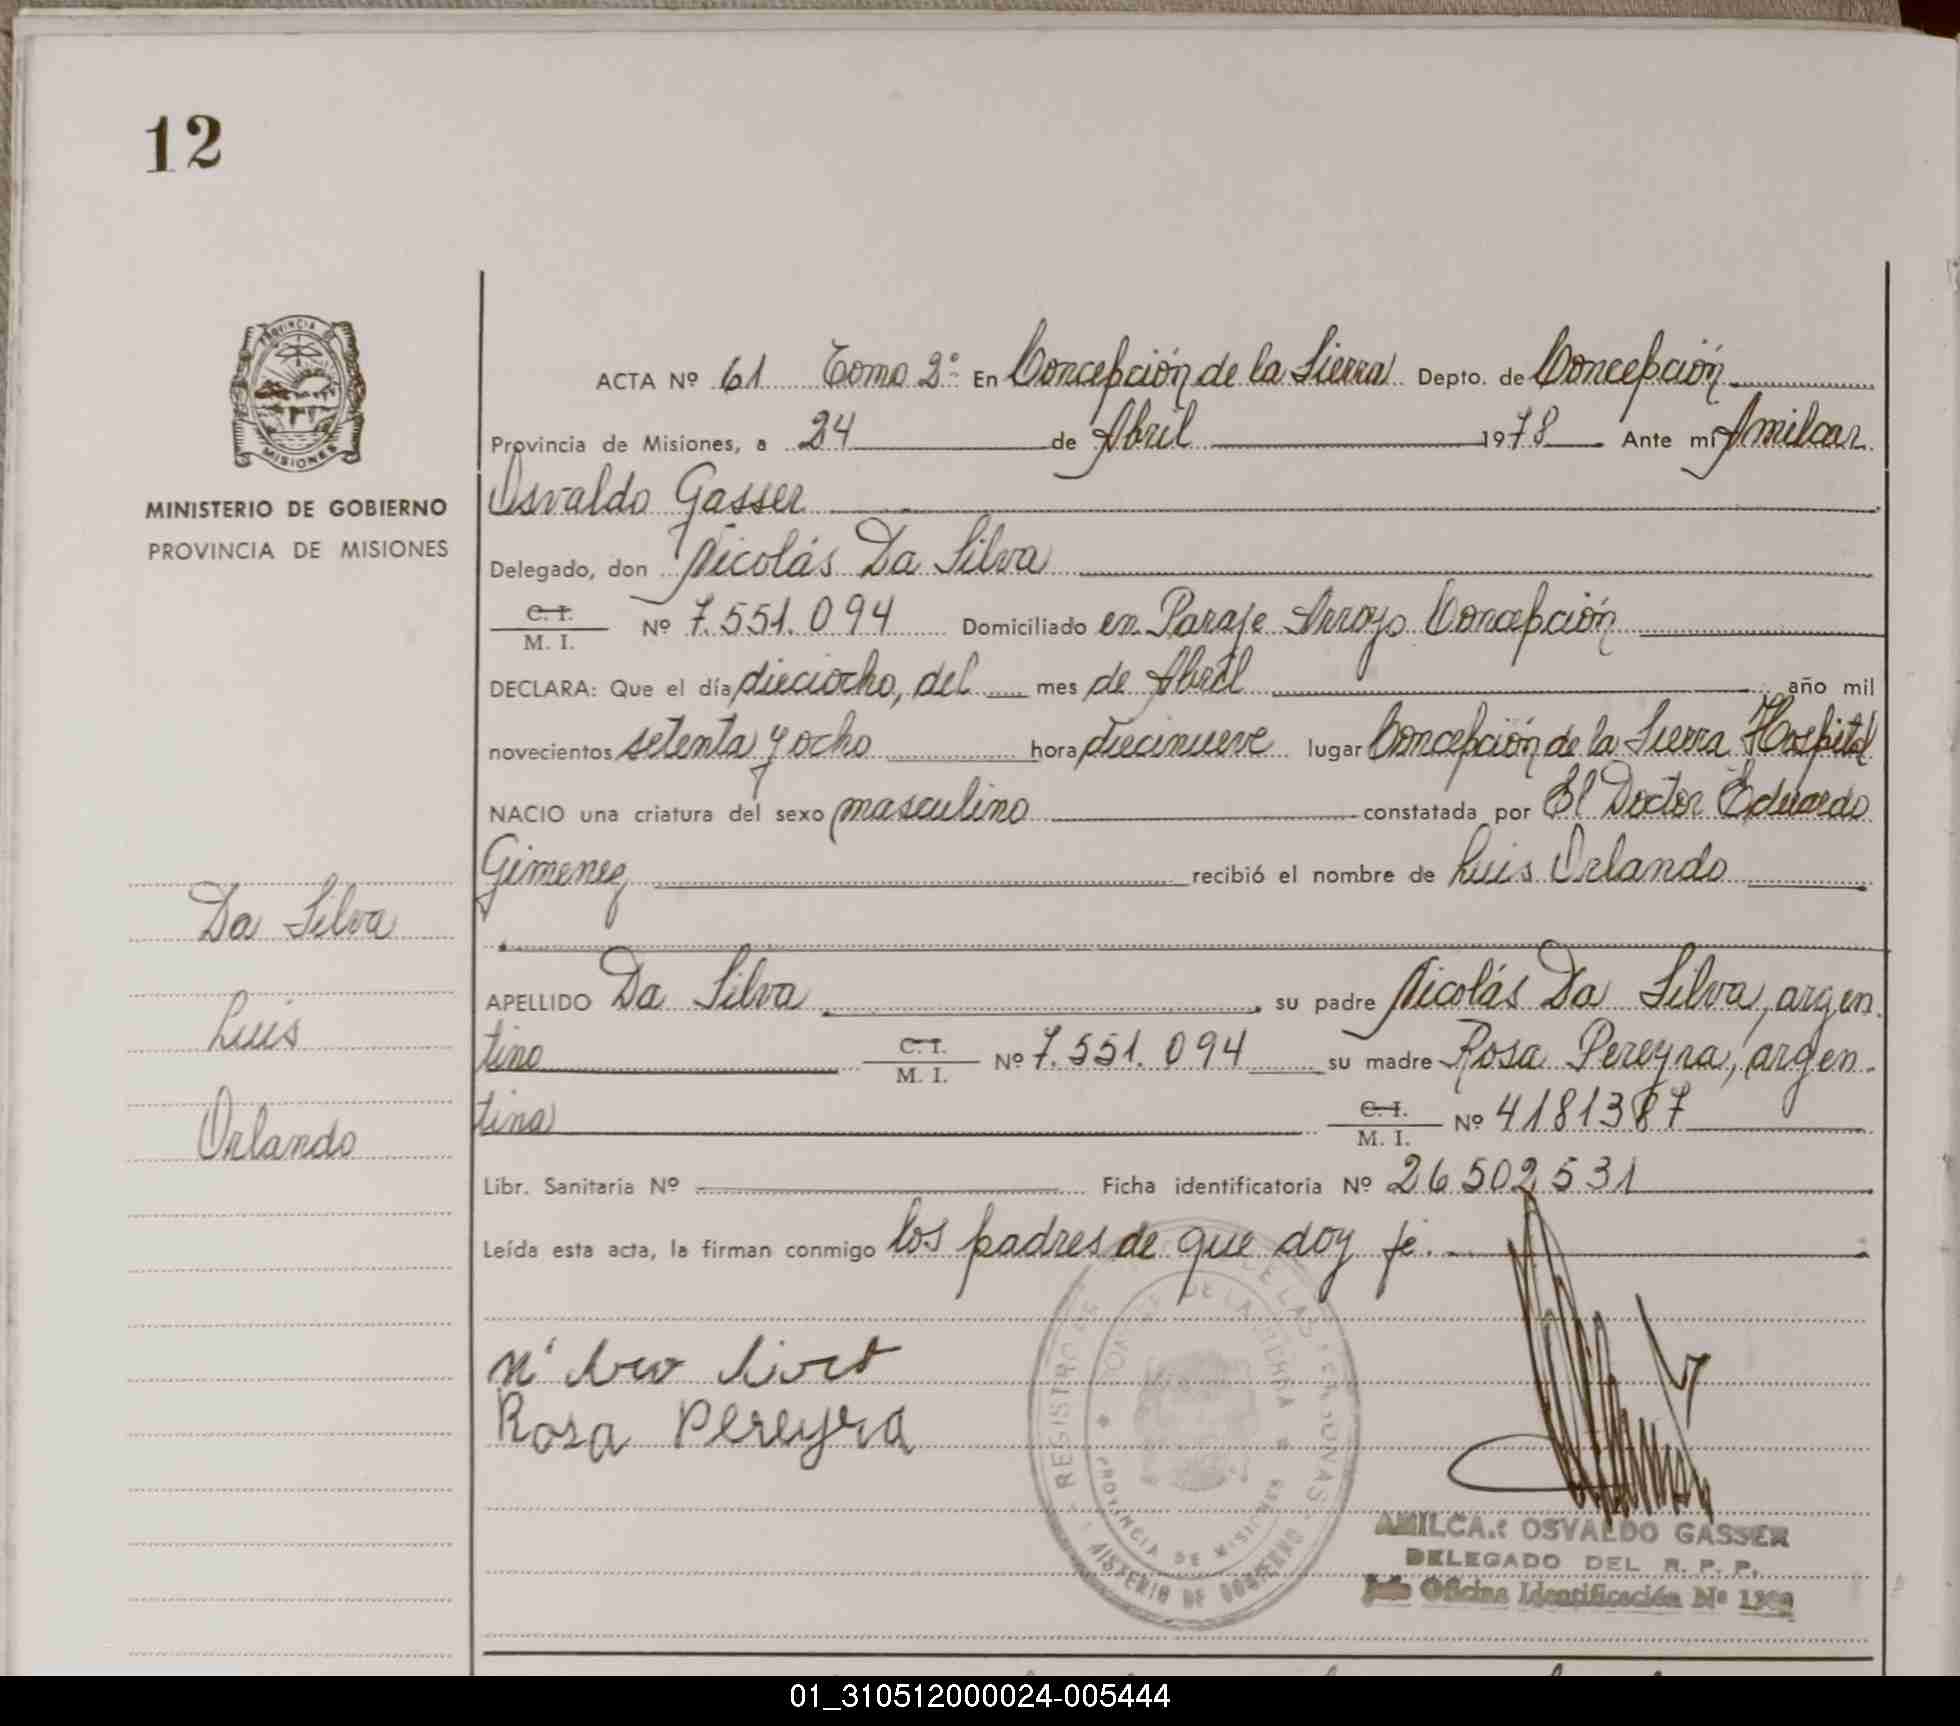 12
PROVINCIA DE
MISIONES
MINISTERIO DE GOBIERNO
PROVINCIA DE MISIONES
Da Silva
Luis
Orlando
ACTA Nº 61 Tomo 2º En Concepción de la Sierra Depto. de Concepción
Provincia de Misiones, a 24 de Abril 1978 Ante mí Amilcar
Osvaldo Gasser
Delegado, don Nicolás Da Silva
C. I.
M. I. Nº 7.551.094 Domiciliado en Paraje Arroyo Concepción
DECLARA: Que el día dieciocho, del mes de Abril año mil
novecientos setenta y ocho hora diecinueve lugar Concepción de la Sierra Hospital
NACIO una criatura del sexo masculino constatada por El Doctor Eduardo
Gimenez recibió el nombre de Luis Orlando
APELLIDO Da Silva, su padre Nicolás Da Silva, argen
tino C. I.
M. I. Nº 7.551.094 su madre Rosa Pereyra, argen-
tina C. I.
M. I. Nº 4181387
Libr. Sanitaria Nº Ficha identificatoria Nº 26502531
Leída esta acta, la firman conmigo los padres de que doy fé.
Rosa Pereyra
REGISTRO DE LAS PERSONAS
PROVINCIA DE MISIONES
MINISTERIO DE GOBIERNO
AMILCAR OSVALDO GASSER
DELEGADO DEL R. P. P.
Jefe Oficina Identificación Nº
01_310512000024-005444